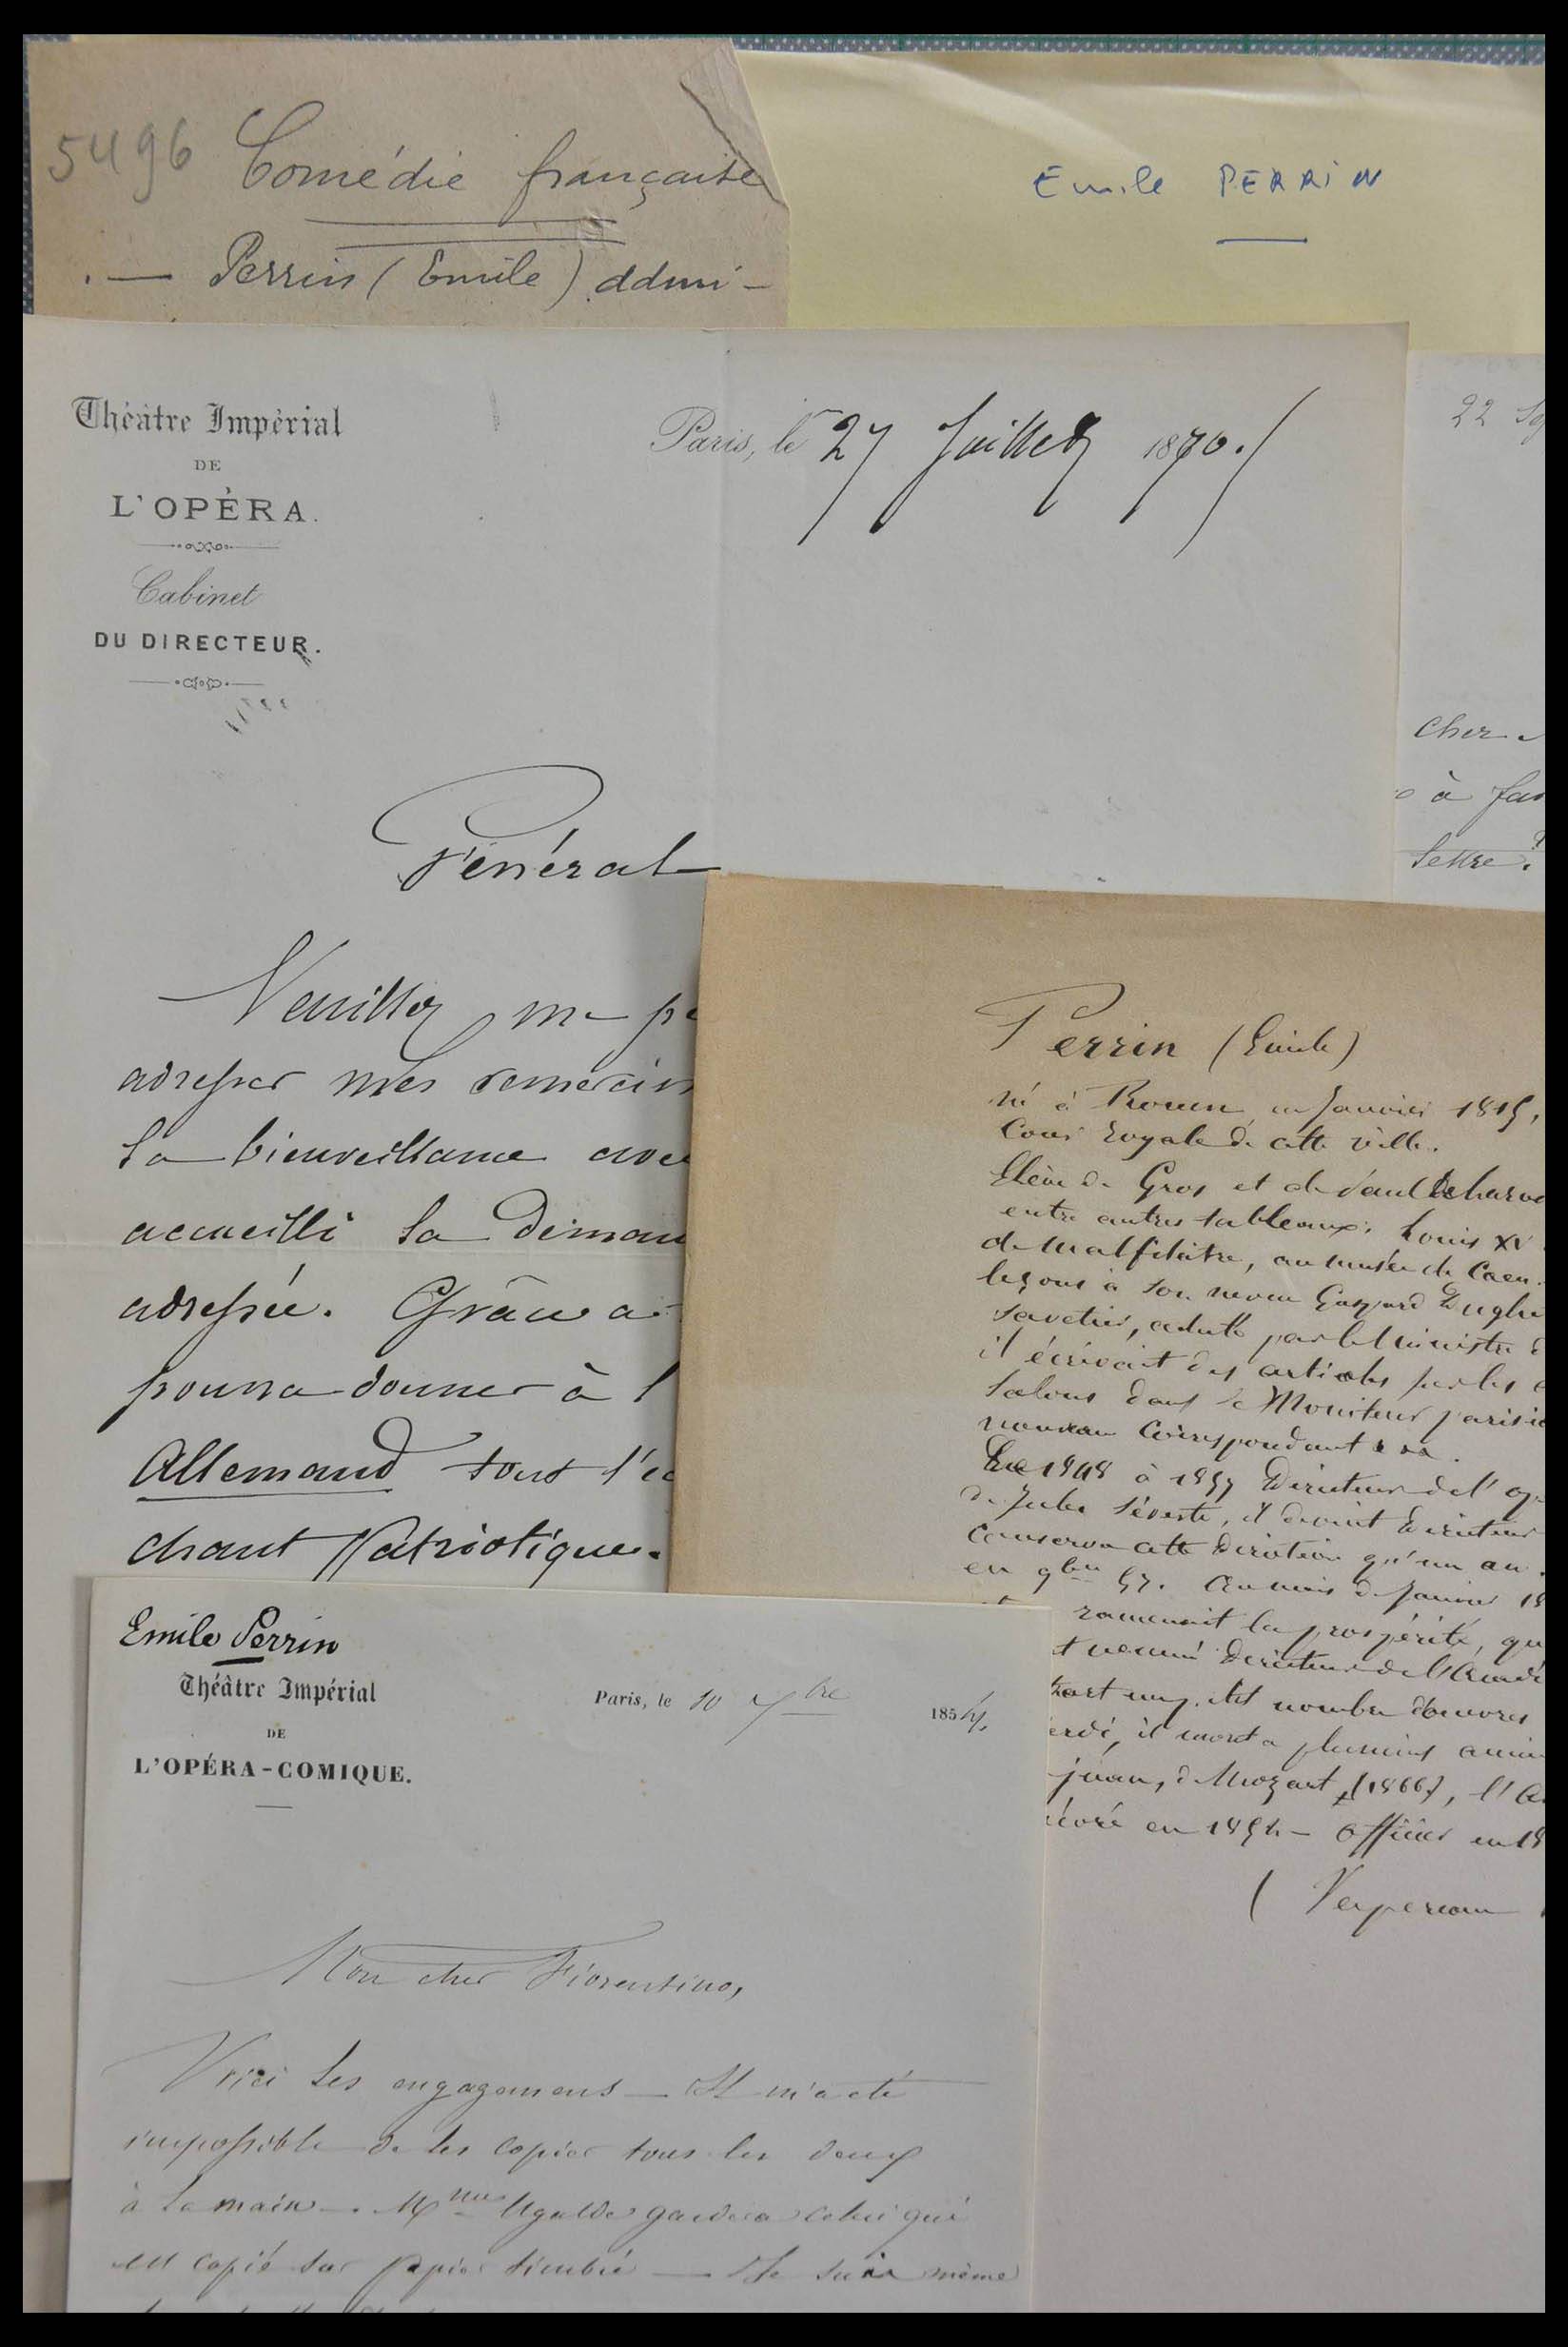 5496 Comédie française
.— Perrin (Emile) admi-
Emile PERRIN
Théâtre Impérial
DE
L'OPÉRA.
Cabinet
DU DIRECTEUR.
Paris, le 27 Juillet 1870.
Général
Veuillez me
adresser mes
la bienveillance avec
accueilli la
adressée. Grâce a
pourra donner à l
Allemand tout l'
chant Patriotique.
22
cher
à
lettre.
Perrin (Emile)
né à Rouen, en Janvier 1815,
Cour royale de cette ville.
Elève de Gros et de Paul Delaroche
entre autres tableaux: Louis XV
de Malfilâtre, au musée de Caen.
leçons à son neveu Gaspard Dughe
savetier, acheté par le Ministre d
il écrivait des articles sur les
Salons dans le Moniteur parisie
nouveau Correspondant
De 1848 à 1857 Directeur de l'Op
de Jules Séveste, il devint Directeur
conserva cette Direction qu'un an.
en 9bre 57. Au mois de Janvier 18
ramenait la prospérité, qu
nommé Directeur de l'Acadé
nombre d'œuvres
il monta plusieurs
juan, de Mozart (1866), l'A
en 1854 - Officier en 18
(Vapereau
Emile Perrin
Théâtre Impérial
DE
L'OPÉRA-COMIQUE.
Paris, le 10 7bre 1854.
Mon cher Fiorentino,
Voici les engagemens — Il m'a été
impossible de les copier tous les deux
à la main. Mme Ugalde gardera celui qui
est copié sur papier timbré — Je suis même